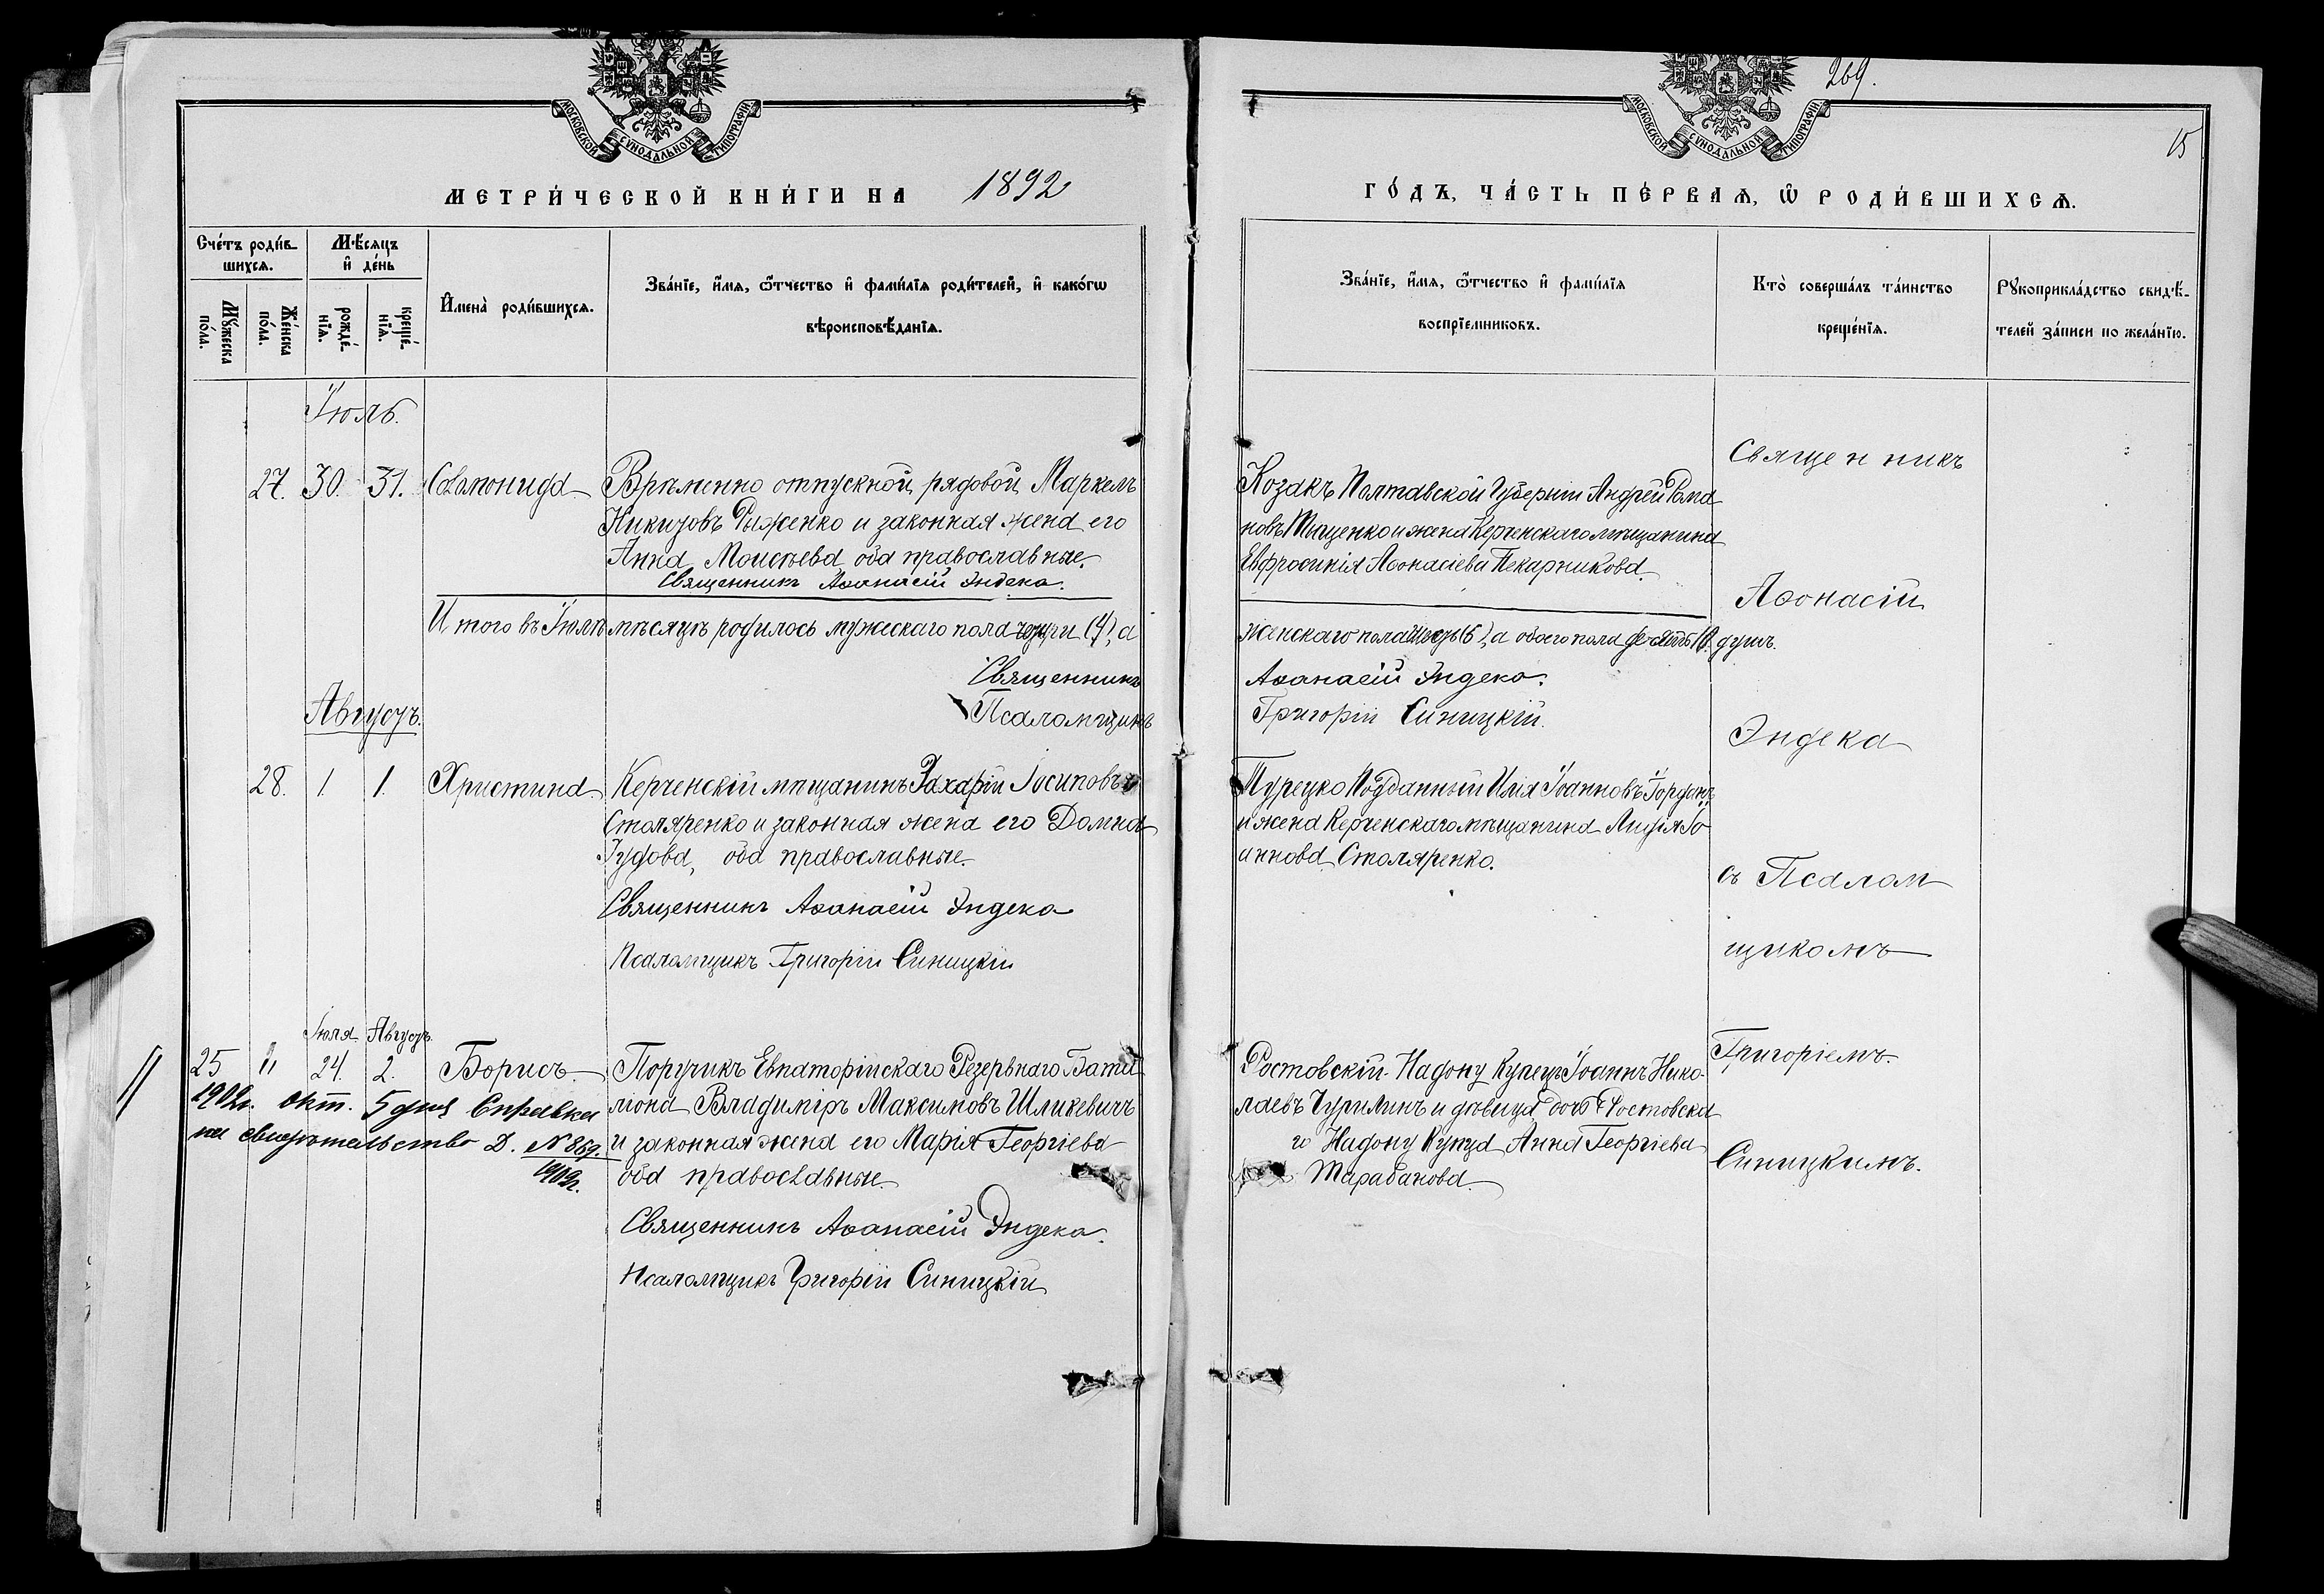 МОСКОВСКОЙ СѴНОДАЛЬНОЙ ТИПОГРАФІИ
МЕТРИ́ЧЕСКОЙ КНИ́ГИ НА 1892
Сче́тъ роди́в-
шихсѧ.
Мꙋ́жеска
по́ла.
Же́нска
по́ла.
Мѣ́сѧцъ
и҆ де́нь
рожде́-
нїѧ.
креще́-
нїѧ.
И҆мена̀ роди́вшихсѧ.
Зва́нїе, и҆́мѧ, ѻ҆́тчество и҆ фами́лїѧ роди́телей, и҆ како́гѡ
вѣроисповѣ́данїѧ.
Іюль.
27. 30. 31.
Временно отпускной рядовой Маркелъ
Рыженко и законная жена его
Анна Моисѣева оба православные.
Священникъ Аѳанасій Эндека.
Итого въ Іюлѣ мѣсяцѣ родилось мужескаго пола четыри (4), а
Священникъ
Псаломщикъ
Августъ.
28. 1. 1. Христина
Керченскій мѣщанинъ Захарій Іосиповъ
Столяренко и законная жена его Домна
оба православные.
Священникъ Аѳанасій Эндека
Псаломщикъ Григорій Синицкій
Іюля Августъ
25 " 24. 2. Борисъ
1902г. окт. 5 дня Справка
на свидѣтельство Д. N 869.
1902г.
Поручикъ Евпаторійскаго Резервнаго Бата-
ліона Владиміръ Максимовъ Шликевичъ
и законная жена его Марія Георгіева
оба православные.
Священникъ Аѳанасій Эндека.
Псаломщикъ Григорій Синицкій
269.
15
МОСКОВСКОЙ СѴНОДАЛЬНОЙ ТИПОГРАФІИ
ГО́ДЪ, ЧА́СТЬ ПЕ́РВАѦ, Ѡ҆ РОДИ́ВШИХСѦ.
Зва́нїе, и҆́мѧ, ѻ҆́тчество и҆ фами́лїѧ
воспрїемниковъ.
Кто̀ соверша́лъ та́инство
креще́нїѧ.
Рꙋкоприкла́дство свидѣ́-
телей за́писи по жела́нїю.
Козакъ Полтавской Губерніи Андрей Рома
новъ Тищенко и жена Керченскаго мѣщанина
Евфросинія Аѳонасіева Пекарникова.
женскаго пола шесть (6), а обоего пола десять 10. душъ.
Аѳанасій Эндека.
Григорій Синицкій.
Турецко Подданный Илія Іоанновъ
и жена Керченскаго мѣщанина Лидія Іо
аннова Столяренко.
Ростовскій-Надону Купецъ Іоаннъ Нико-
лаевъ Чурилинъ и дѣвица дочь Ростовска
го Надону Купца Анна Георгіева
Тарабанова.
Священникъ
Аѳонасій
Эндека
съ Псалом
щикомъ
Григоріемъ.
Синицкимъ.